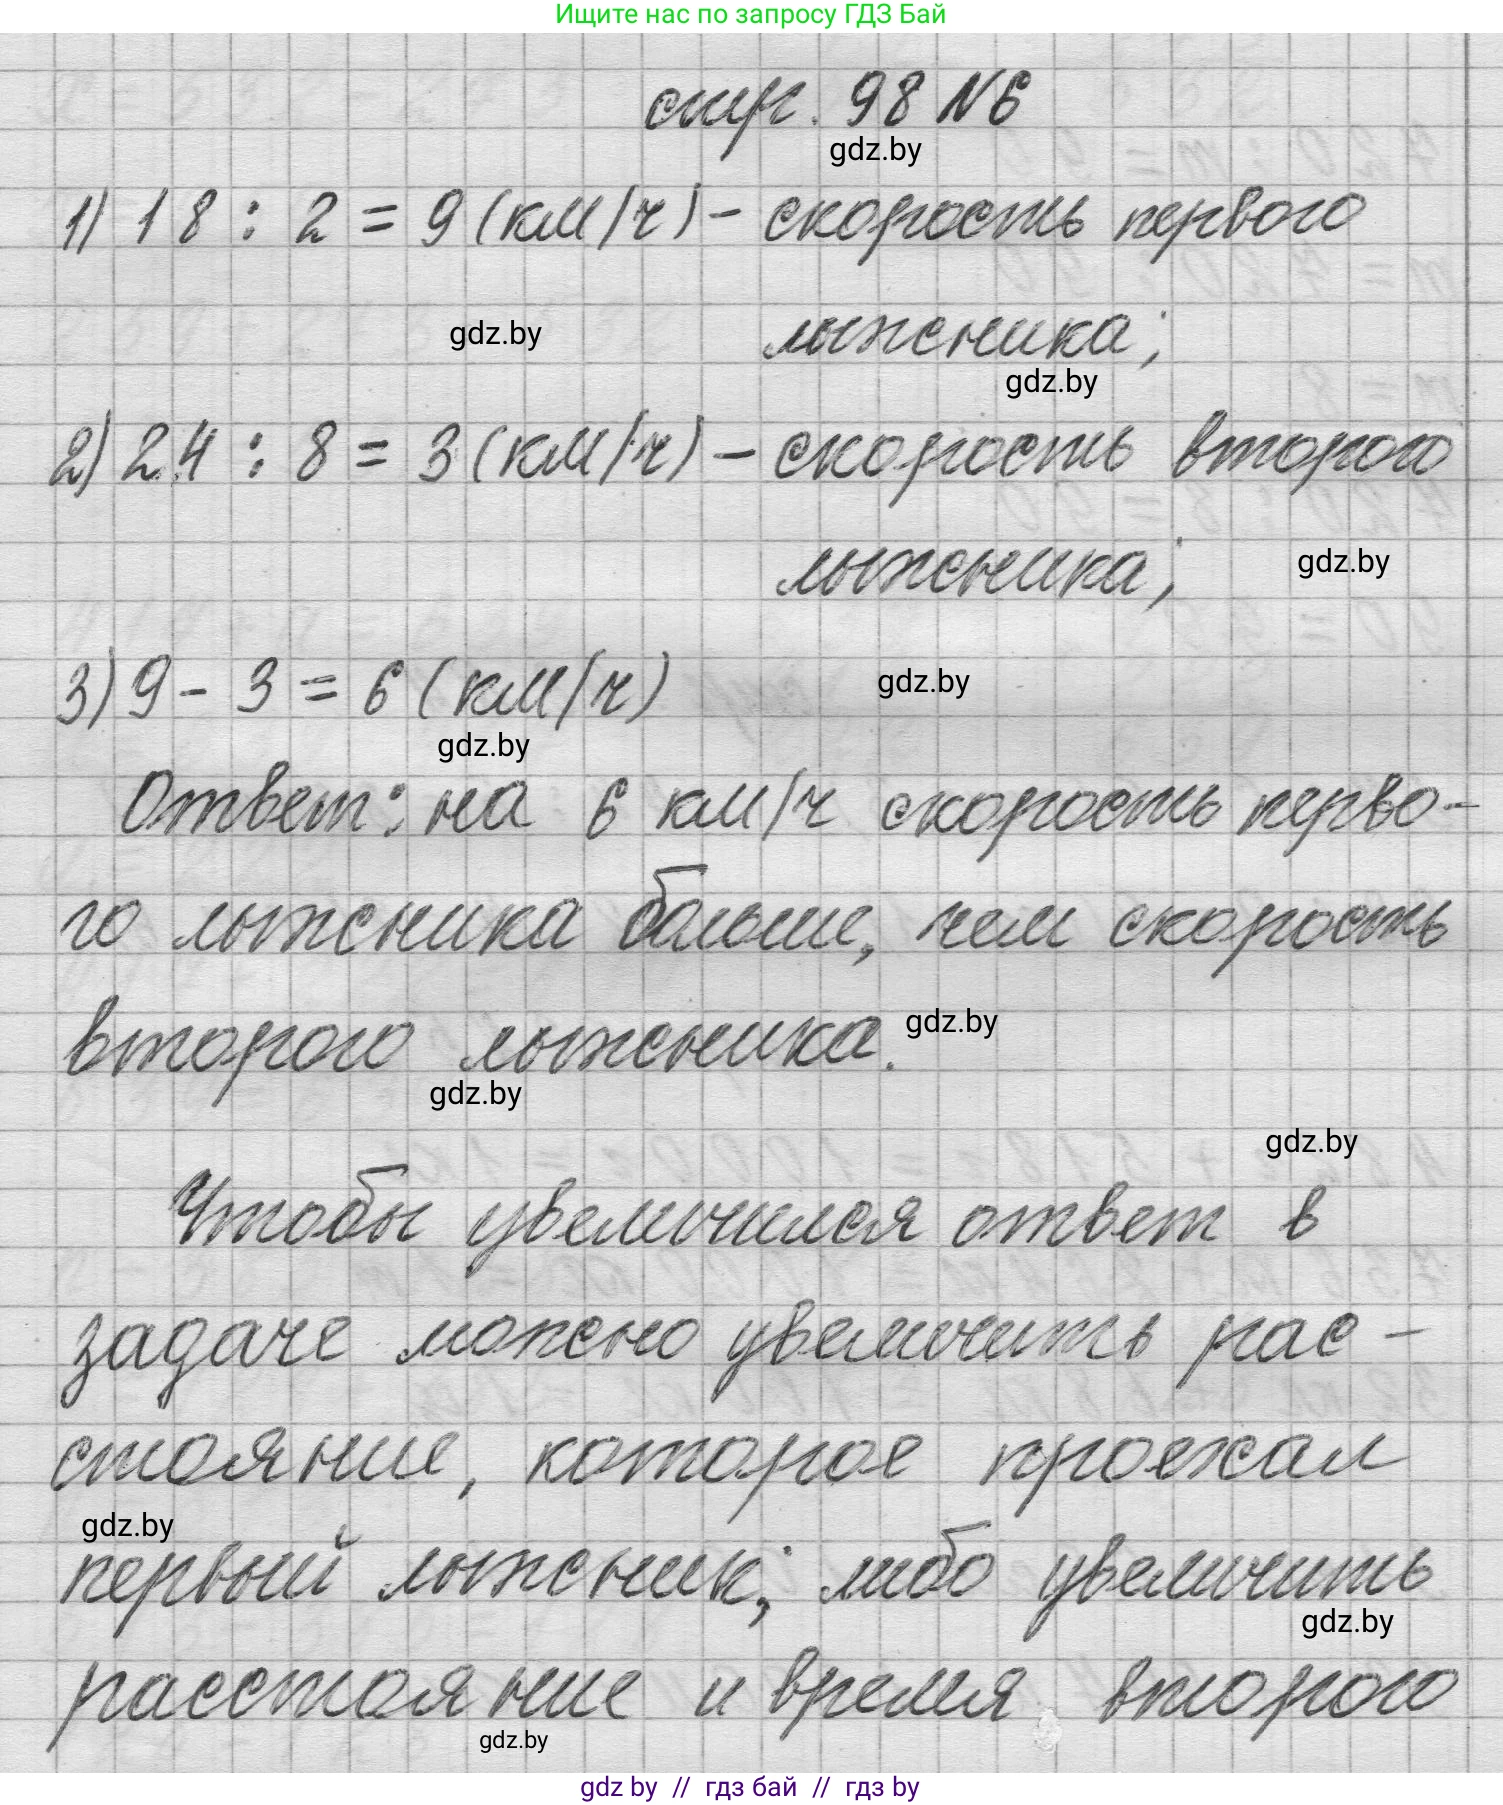 Ищите нас по запросу ГДЗ Бай
стр. 98 №6
gdz.by
1) 18 : 2 = 9 (км/ч) - скорость первого
gdz.by
лыжника;
gdz.by
2) 24 : 8 = 3 (км/ч) - скорость второго
лыжника;
gdz.by
3) 9 - 3 = 6 (км/ч)
gdz.by
gdz.by
Ответ: на 6 км/ч скорость перво-
го лыжника больше, чем скорость
второго лыжника.
gdz.by
gdz.by
gdz.by
Чтобы увеличился ответ в
задаче можно увеличить рас-
стояние, которое проехал
gdz.by
первый лыжник; либо увеличить
gdz.by
расстояние и время второго
gdz.by
gdz by // гдз бай // гдз by